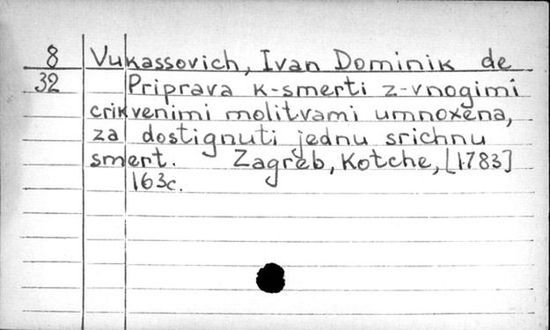 8 Vukassovich, Ivan Dominik de
32 Priprava k-smerti z-vnogimi
crikvenimi molitvami umnoxena,
za dostignuti jednu srichnu
smert. Zagreb, Kotche, [1783]
163c.